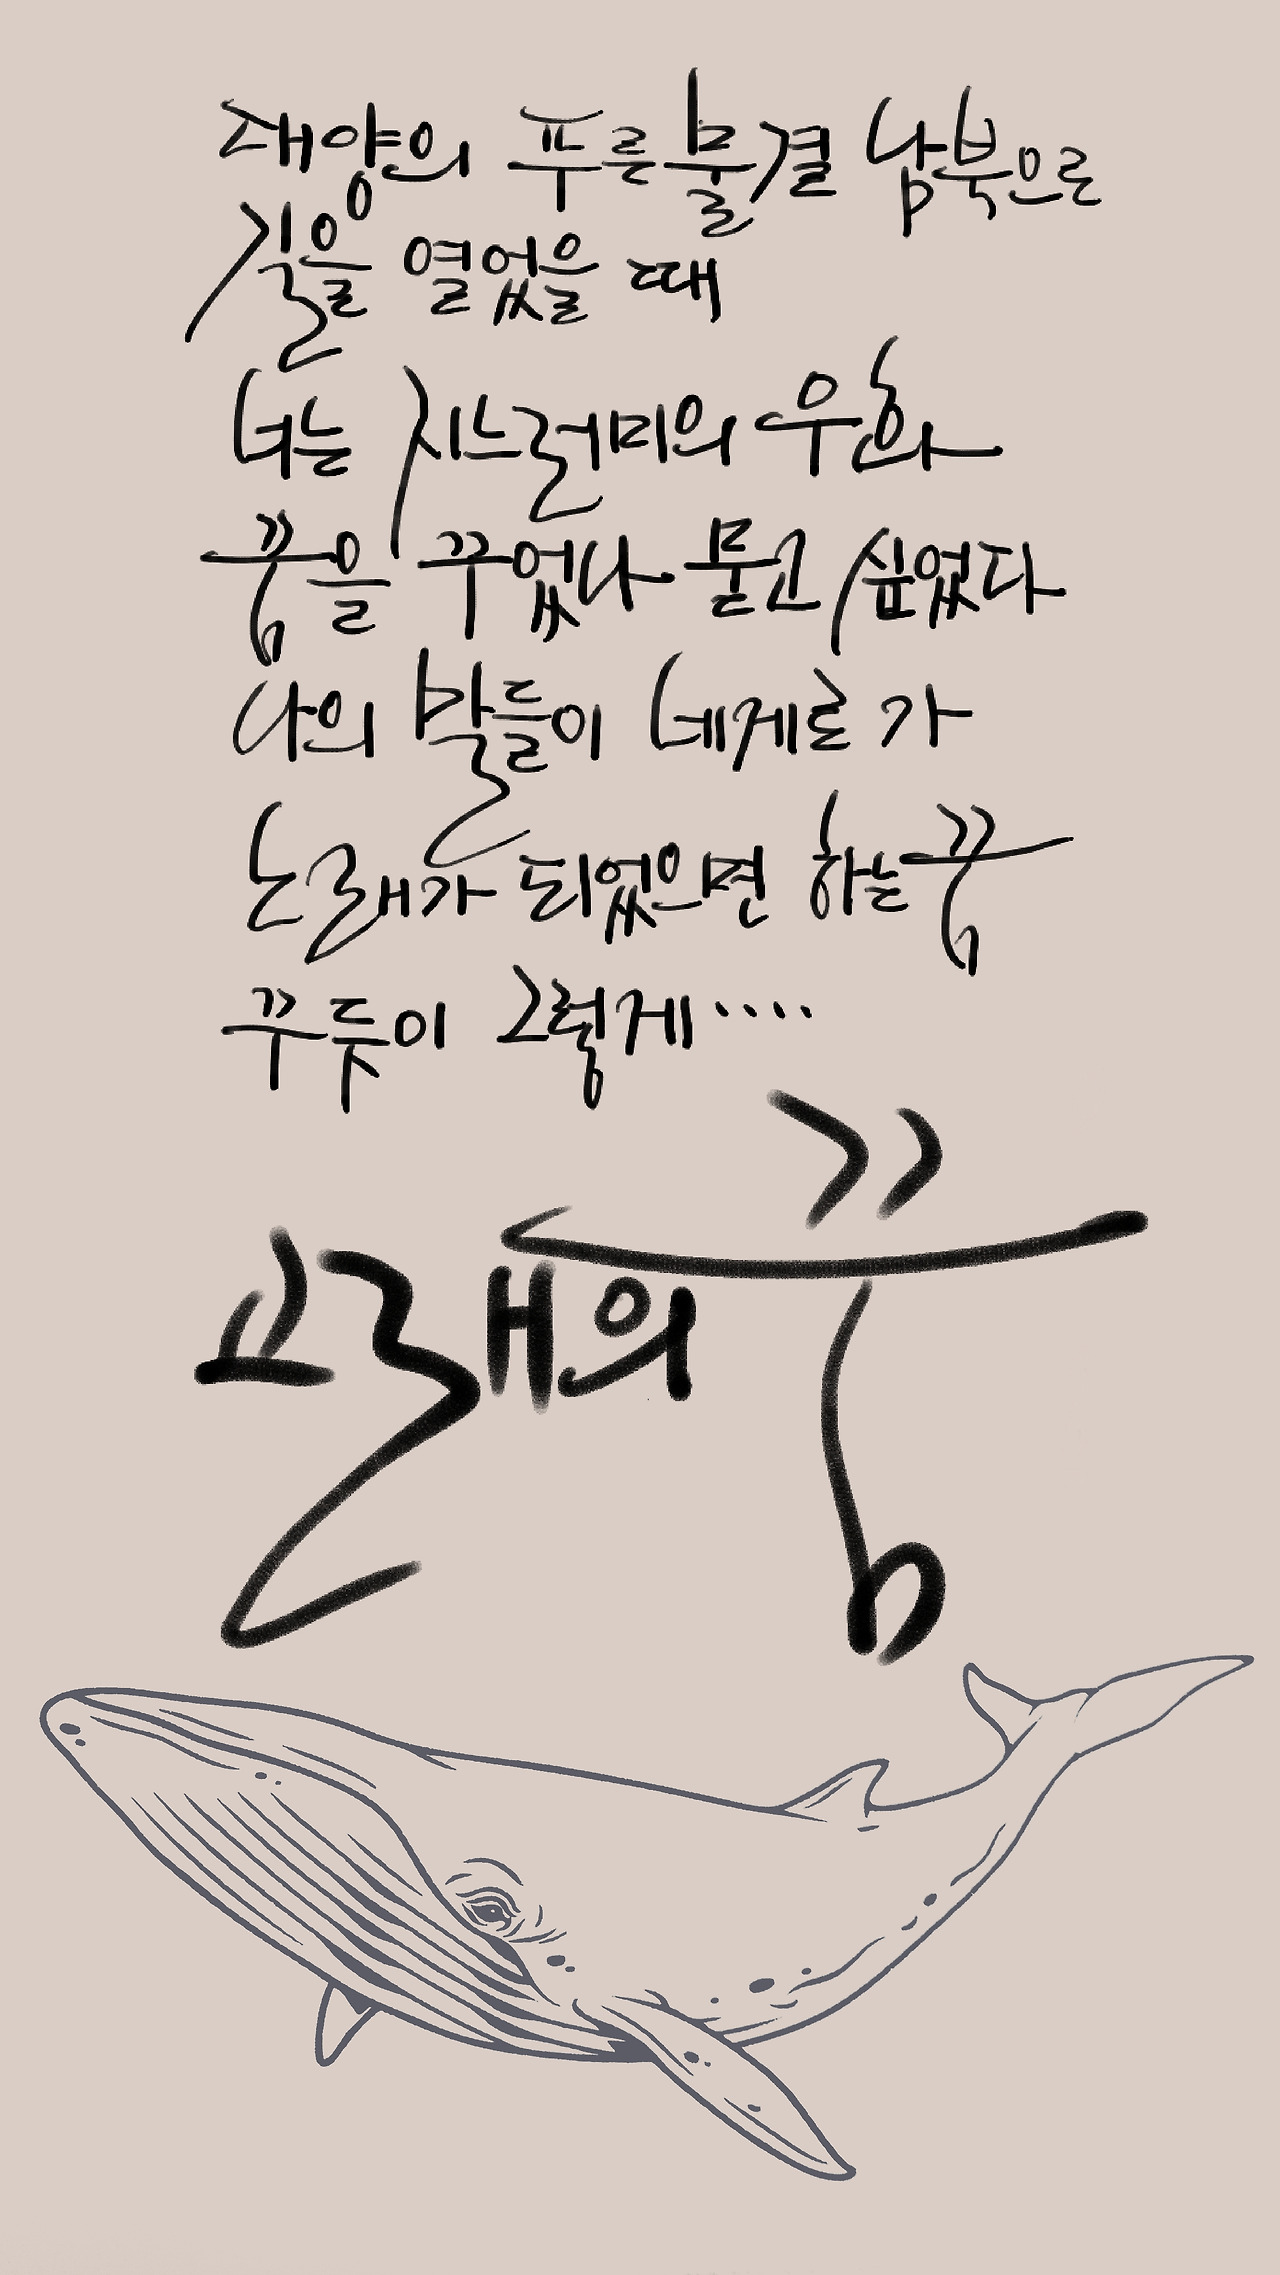 대양의 푸른 물결 남북으로
길을 열었을 때
너는 지느러미의 우화
꿈을 꾸었나 묻고 싶었다
나의 발들이 네게로 가
노래가 되었으면 하는 꿈
꾸듯이 그렇게····
고래의 꿈